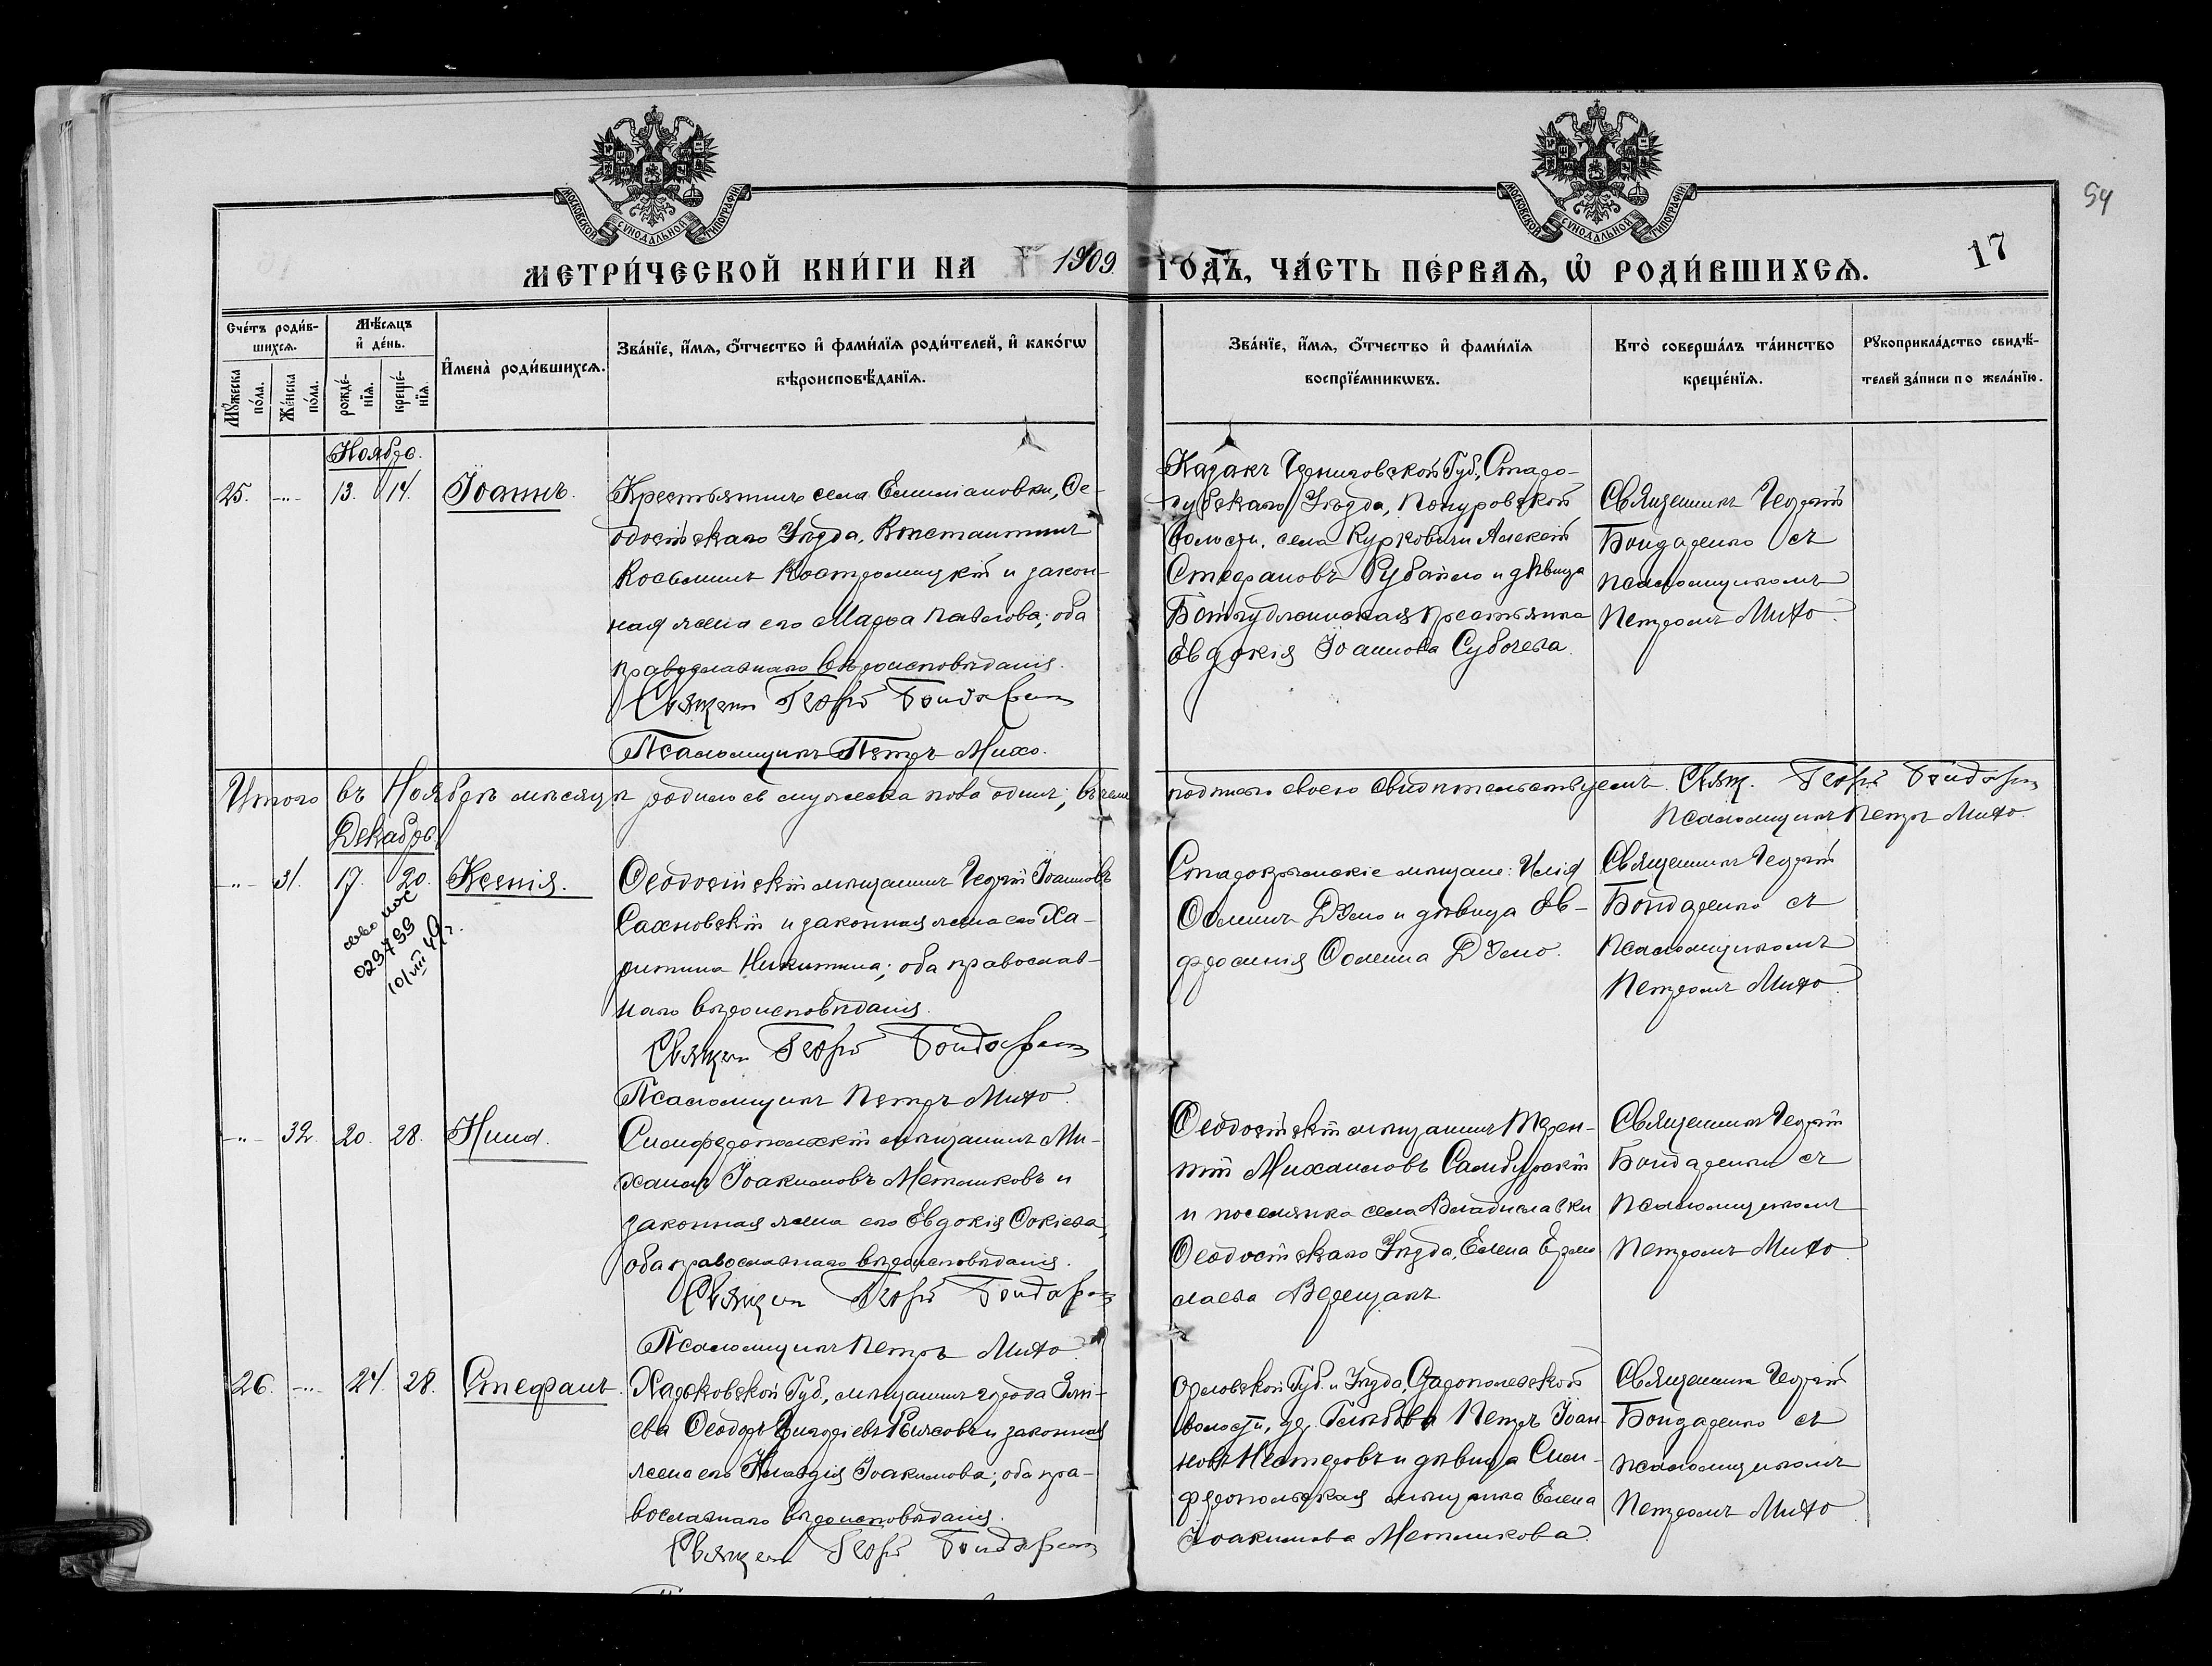 МОСКОВСКОЙ СѴНОДАЛЬНОЙ ТИПОГРАФІИ
МОСКОВСКОЙ СѴНОДАЛЬНОЙ ТИПОГРАФІИ
54
17
МЕТРИ́ЧЕСКОЙ КНИ́ГИ НА 1909 ГО́ДЪ, ЧА́СТЬ ПЕ́РВАѦ, Ѡ҆ РОДИ́ВШИХСѦ.
Сче́тъ роди́в-
шихсѧ.
Мꙋ́жеска по́ла.
Же́нска по́ла.
Мѣ́сѧцъ
и҆ де́нь.
рожде́-
нїѧ.
креще́-
нїѧ.
И҆мена̀ роди́вшихсѧ.
Зва́нїе, и҆́мѧ, ѻ҆́тчество и҆ фами́лїѧ роди́телей, и҆ како́гѡ
вѣроисповѣ́данїѧ.
Зва́нїе, и҆́мѧ, ѻ҆́тчество и҆ фами́лїѧ
воспрїе́мникѡвъ.
Кто̀ соверша́лъ та́инство
креще́нїѧ.
Рꙋкоприкла́дство свидѣ́-
телей за́писи по жела́нїю.
Ноябрь.
25. -"- 13. 14. Іоаннъ.
Крестьянинъ села Емиліановки, Ѳе-
одосійскаго Уѣзда, Константинъ
Косьминъ Костромицкій и закон-
ная жена его Марѳа Павлова; оба
православнаго вѣроисповѣданія.
Священ Георгій Бондаренко
Псаломщикъ Петръ Михо.
Казакъ Черниговской Губ., Старо-
дубскаго Уѣзда, Понуровской
волости, села Курковичи Алексѣй
Стефановъ Рубайло и дѣвица
крестьянка
Евдокія Іоаннова Субочева.
Священникъ Георгій
Бондаренко съ
псаломщикомъ
Петромъ Михо.
Итого въ Ноябрѣ мѣсяцѣ родилось мужеска пола одинъ; въ чемъ подписью своею свидѣтельствуемъ. Свящ. Георгій Бондаренко
Псаломщикъ Петръ Михо.
Декабрь
-"- 31. 17. 20. Ксенія.
029799
10/VIII 49 г.
Ѳеодосійскій мѣщанинъ Георгій Іоанновъ
Сахновскій и законная жена его Ха-
ритина Никитина; оба православ-
наго вѣроисповѣданія.
Священ Георгій Бондаренко
Псаломщикъ Петръ Михо.
Старокрымскіе мѣщане: Илія
Ѳоминъ Дзюмо и дѣвица Ев-
фросинія Ѳомина Дзюмо.
Священникъ Георгій
Бондаренко съ
псаломщикомъ
Петромъ Михо.
-"- 32. 20. 28. Нина.
Симферопольскій мѣщанинъ Ми-
хаилъ Іоакимовъ Метликовъ и
законная жена его Евдокія Ѳокіева;
оба православнаго вѣроисповѣданія.
Священ Георгій Бондаренко
Псаломщикъ Петръ Михо.
Ѳеодосійскій мѣщанинъ Терен-
тій Михаиловъ Самбурскій
и поселянка села Владиславки
Ѳеодосійскаго Уѣзда, Елена Ермо
лаева Верещакъ.
Священникъ Георгій
Бондаренко съ
псаломщикомъ
Петромъ Михо.
26. -"- 24. 28. Стефанъ.
Харьковской Губ., мѣщанинъ города Змі-
ева Ѳеодоръ Григоріевъ и законная
жена его Клавдія Іоакимова; оба пра-
вославнаго вѣроисповѣданія.
Священ Георгій Бондаренко
Орловской Губ. и Уѣзда,
волости, дер. Глѣбова Петръ Іоан-
новъ Нестеровъ и дѣвица Сим-
феропольская мѣщанка Елена
Іоакимова Метликова.
Священникъ Георгій
Бондаренко съ
псаломщикомъ
Петромъ Михо.